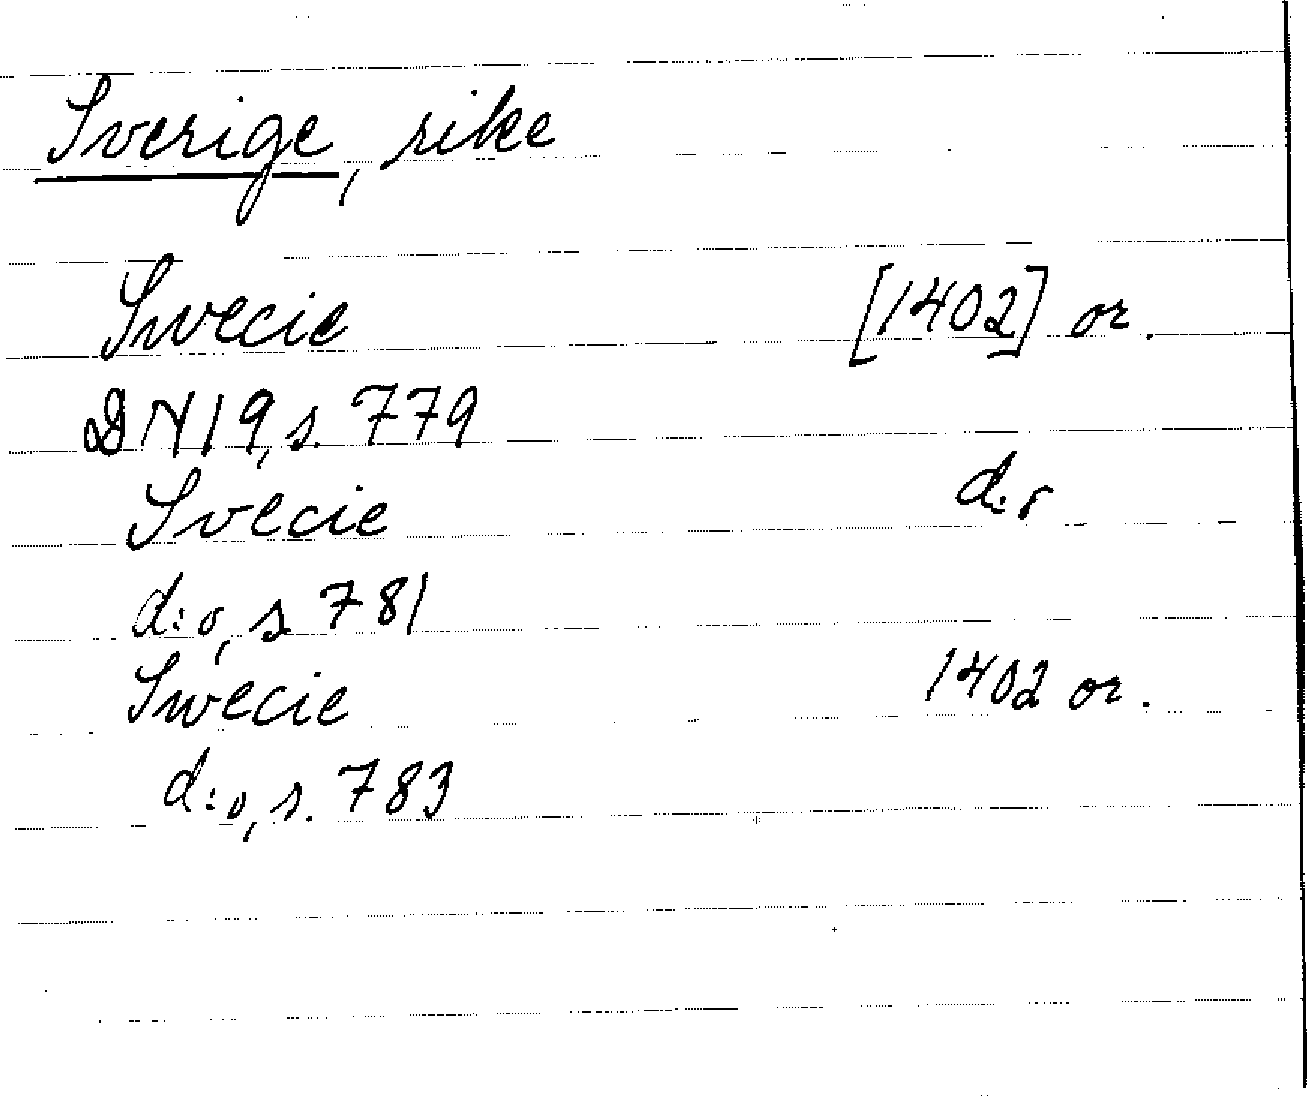 Sverige, rike
Swecie [1402] or.
DN 19, s. 779
Svecie d:o
d:o, s. 781
Swecie 1402 or.
d:o, s. 783